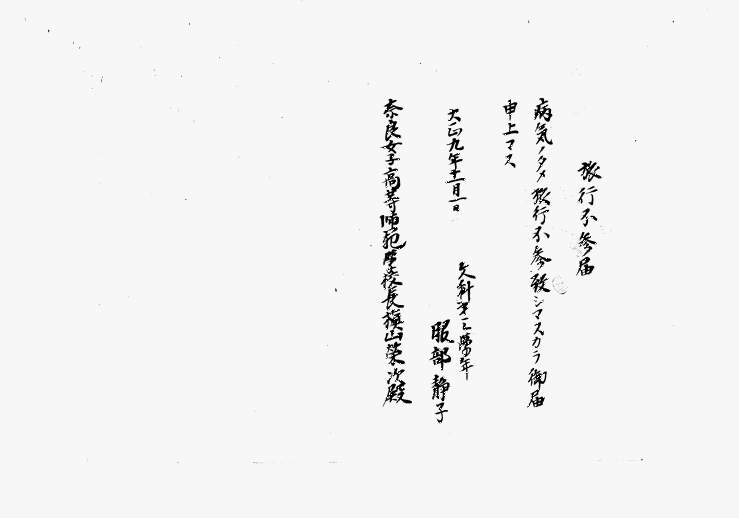 旅行不参届
病気ノタメ旅行不参致シマスカラ御届
申上マス
大正九年十一月一日
文科第三学年
服部静子
奈良女子高等師範学校長槇山榮次殿